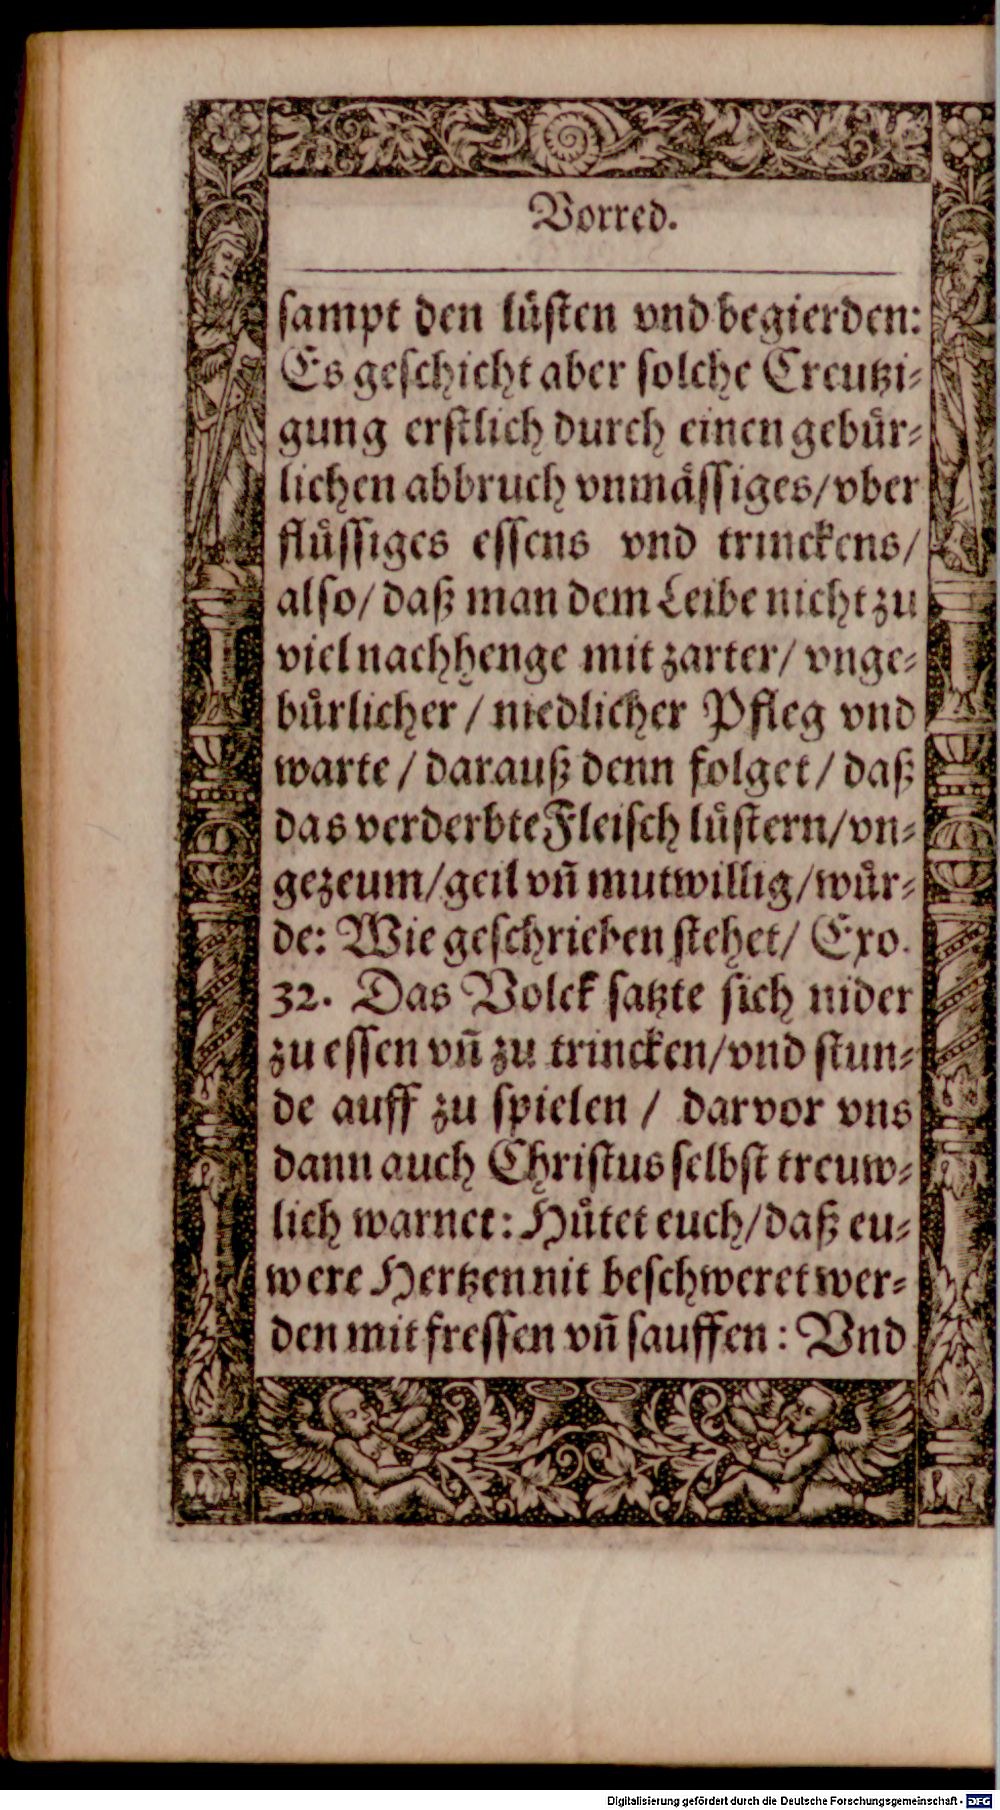 Vorred.
sampt den lüsten vnd begierden:
Es geschicht aber solche Creutzi-
gung erstlich durch einen gebür-
lichen abbruch vnmässiges/ vber
flüssiges essens vnd trinckens/
also/ daß man dem Leibe nicht zu
viel nachhenge mit zarter/ vnge-
bürlicher / niedlicher Pfleg vnd
warte / darauß denn folget / daß
das verderbte Fleisch lüstern/ vn-
gezeum/ geil vñ mutwillig/ wür-
de: Wie geschrieben stehet/ Exo.
32. Das Volck satzte sich nider
zu essen vñ zu trincken/ vnd stun-
de auff zu spielen / darvor vns
dann auch Christus selbst treuw-
lich warnet: Hütet euch/ daß eu-
were Hertzen nit beschweret wer-
den mit fressen vñ sauffen: Vnd
Digitalisierung gefördert durch die Deutsche Forschungsgemeinschaft - DFG